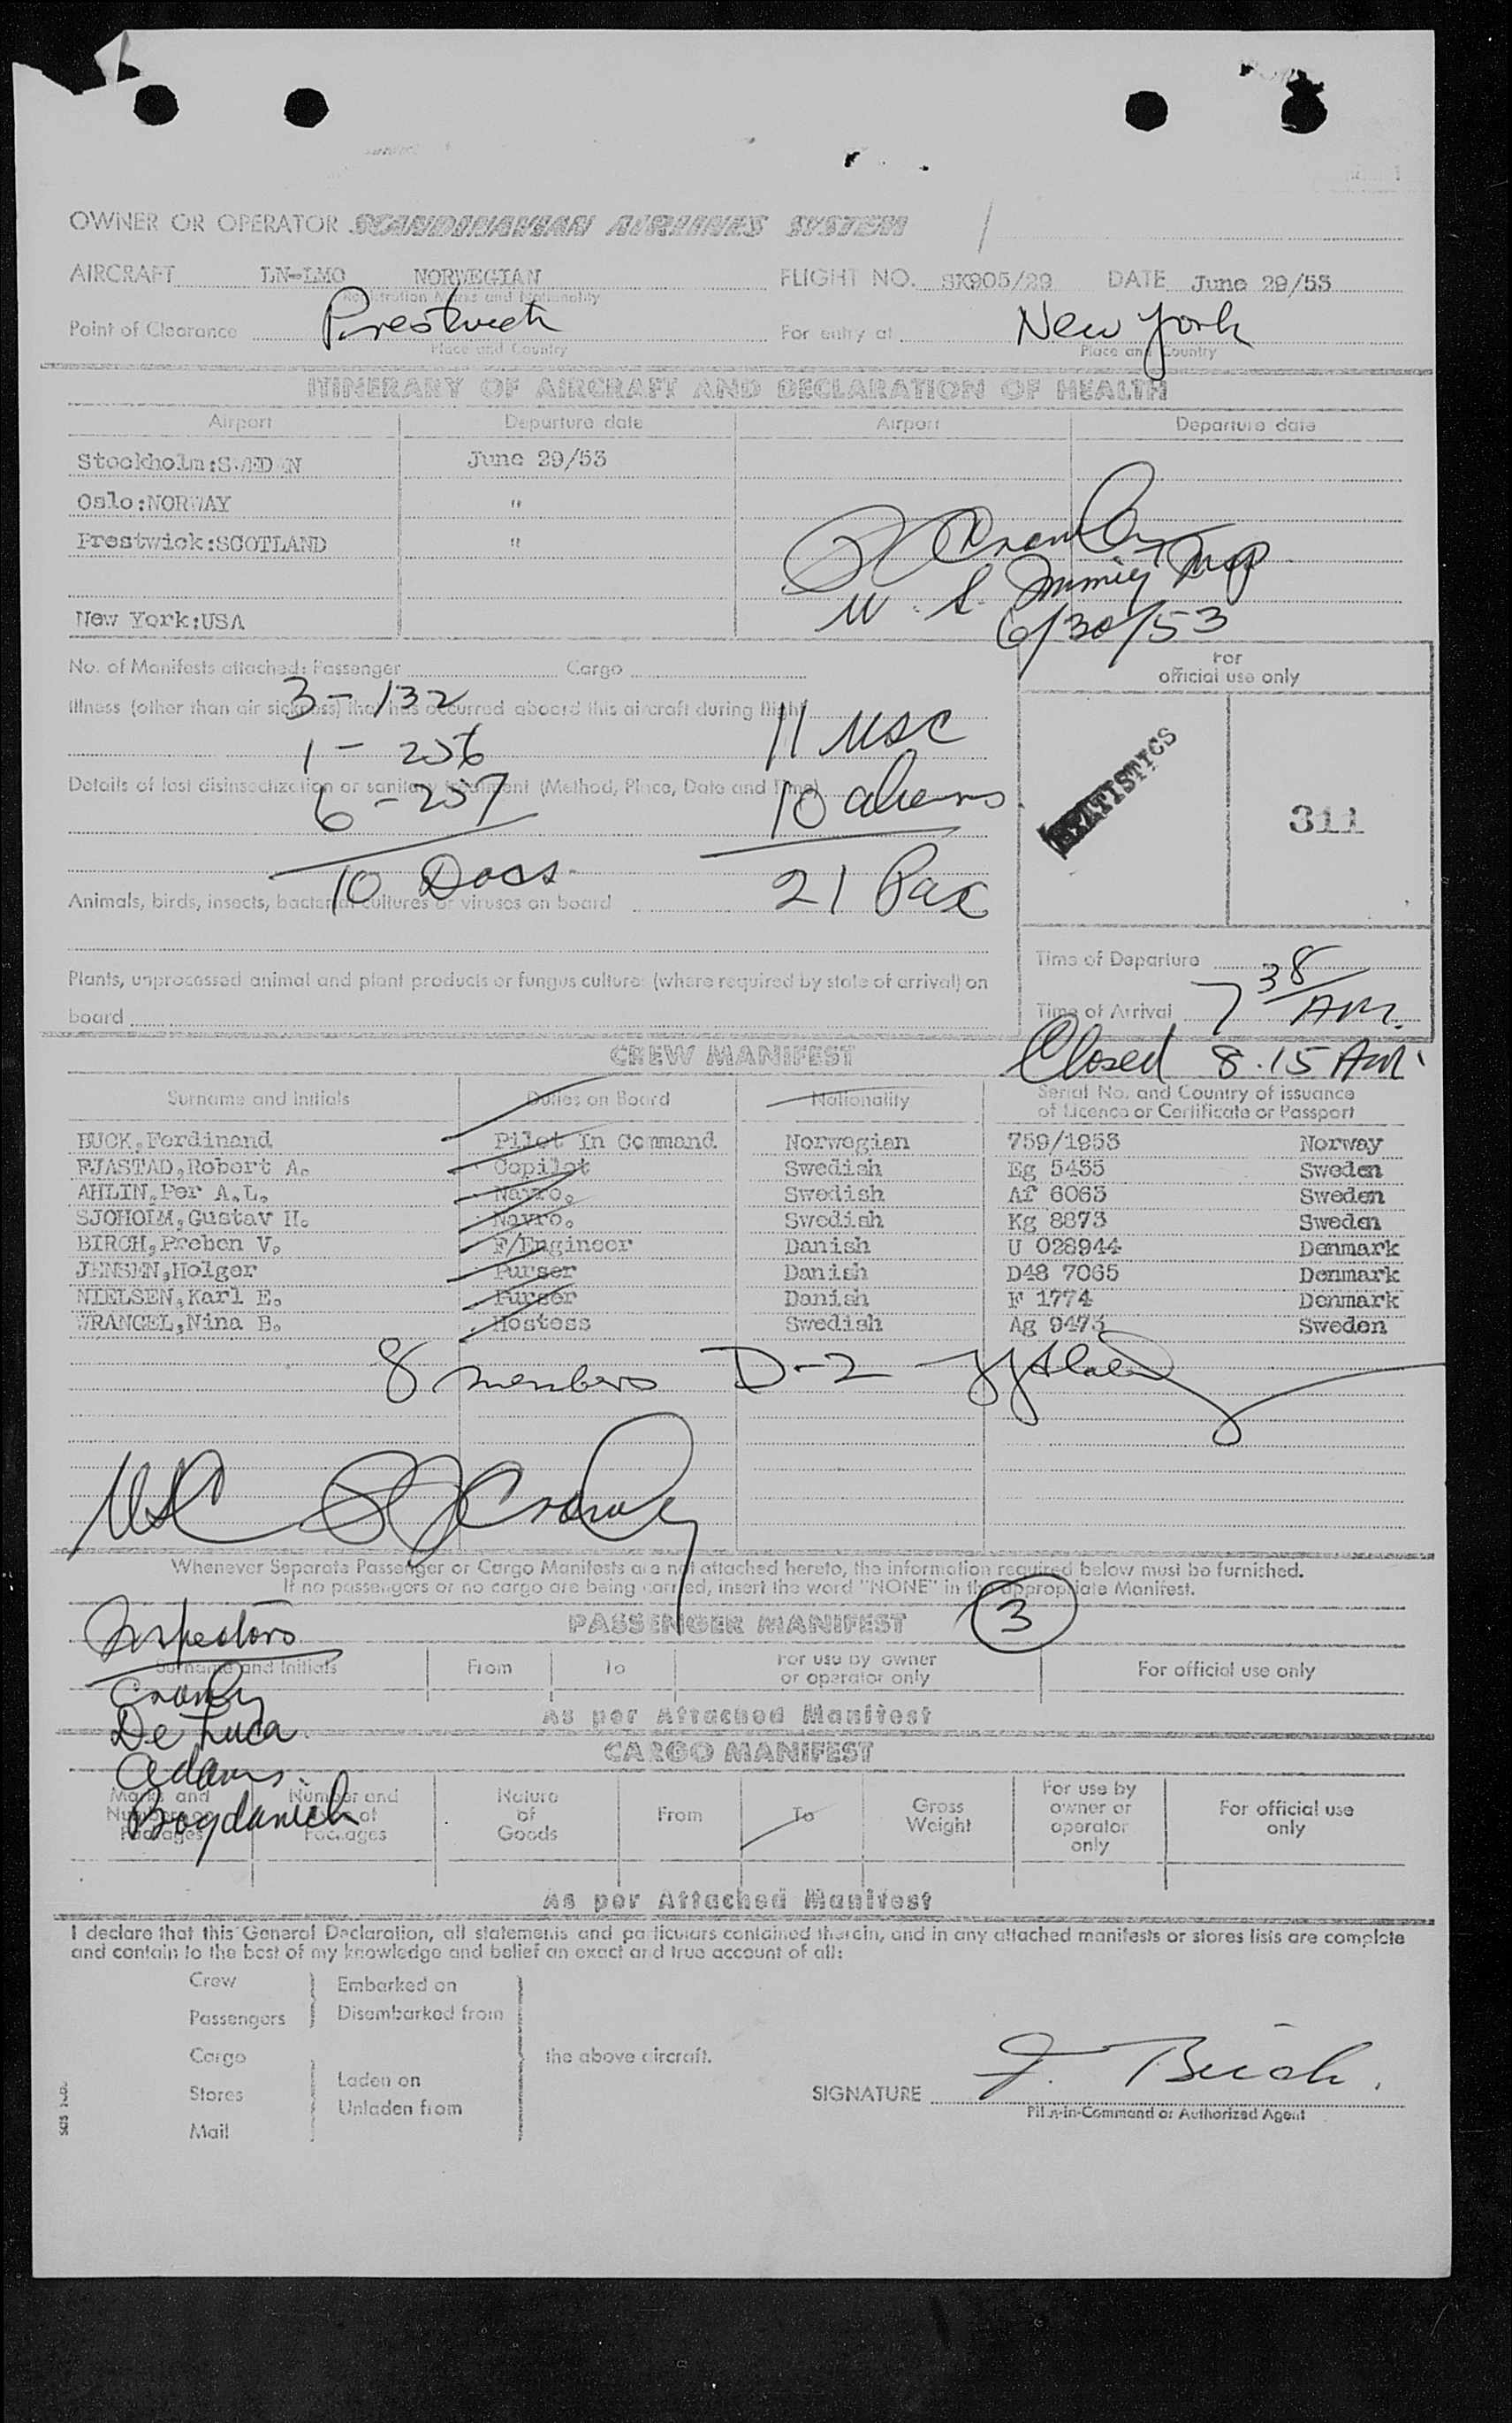 OWNER OR OPERATOR SCANDINAVIAN AIRLINES SYSTEM /
AIRCRAFT LN-LMO NORWEGIAN FLIGHT NO. SK905/29 DATE June 29/53
Registration Marks and Nationality
Point of Clearance Prestwick For entry at New York
Place and Country Place and Country
ITINERARY OF AIRCRAFT AND DECLARATION OF HEALTH
Airport Departure date Airport Departure date
Stockholm:SWEDEN June 29/53
Oslo:NORWAY "
Prestwick:SCOTLAND "
U. S. Immig Insp
New York:USA
6/30/53
No. of Manifests attached: Passenger Cargo
For
official use only
Illness (other than air sickness) that has occurred aboard this aircraft during flight
3 - 132
11 USC
1 - 256
Details of last disinsectization or sanitary treatment (Method, Place, Date and Time)
6 - 257
10 aliens
STATISTICS
311
10 Docs.
21 Pax
Animals, birds, insects, bacterial cultures or viruses on board
Plants, unprocessed animal and plant products or fungus cultures (where required by state of arrival) on
board
Time of Departure
Time of Arrival 7 38 AM.
Closed 8.15 AM.
CREW MANIFEST
Surname and Initials Duties on Board Nationality Serial No. and Country of issuance
of Licence or Certificate or Passport
BUCK,Ferdinand Pilot In Command Norwegian 759/1953 Norway
FJASTAD,Robert A. Copilot Swedish Eg 5455 Sweden
AHLIN,Per A.L. Navro. Swedish Af 6063 Sweden
SJOHOLM,Gustav H. Navro. Swedish Kg 8873 Sweden
BIRCH,Preben V. F/Engineer Danish U 028944 Denmark
JENSEN,Holger Purser Danish D48 7065 Denmark
NIELSEN,Karl E. Purser Danish F 1774 Denmark
WRANGEL,Nina B. Hostess Swedish Ag 9473 Sweden
8 members D-2
USC
Whenever Separate Passenger or Cargo Manifests are not attached hereto, the information required below must be furnished.
If no passengers or no cargo are being carried, insert the word "NONE" in the appropriate Manifest.
Inspectors
PASSENGER MANIFEST
3
Surname and Initials From To For use by owner
or operator only For official use only
De Luca
As per Attached Manifest
Adams
CARGO MANIFEST
Bogdanich
Marks and
Numbers on
Packages
Number and
Type of
Packages
Nature
of
Goods
From To Gross
Weight
For use by
owner or
operator
only
For official use
only
As per Attached Manifest
I declare that this General Declaration, all statements and particulars contained therein, and in any attached manifests or stores lists are complete
and contain to the best of my knowledge and belief an exact and true account of all:
Crew Embarked on
Passengers Disembarked from
Cargo the above aircraft.
Stores Laden on
Unladen from
Mail
SIGNATURE
Pilot-in-Command or Authorized Agent